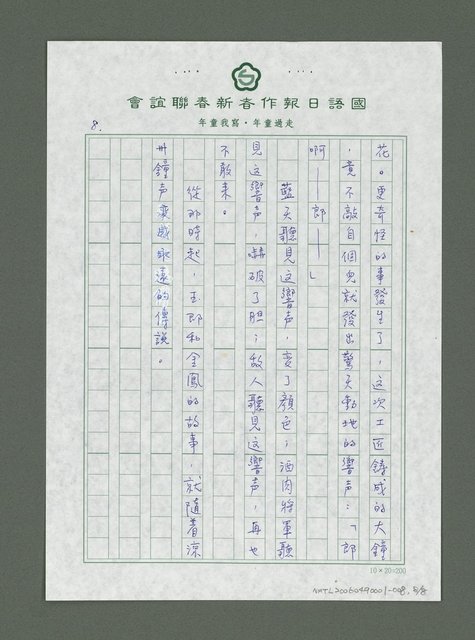 會誼聯春新春作報日語國
年童我寫・年童過走
8.
花。更奇怪的事發生了，這次工匠鑄成的大鐘
，竟不敲自個兒就發出驚天動地的響声：「郎
啊——郎——」
藍天聽見這響声，變了顏色；酒肉將軍聽
見這響声，嚇破了胆；敵人聽見這響声，再也
不敢來。
從那時起，玉郎和金鳳的故事，就隨着涼
州鐘声變成永遠的傳說。
10×20=200
NMTL20060490001-008, 8/8